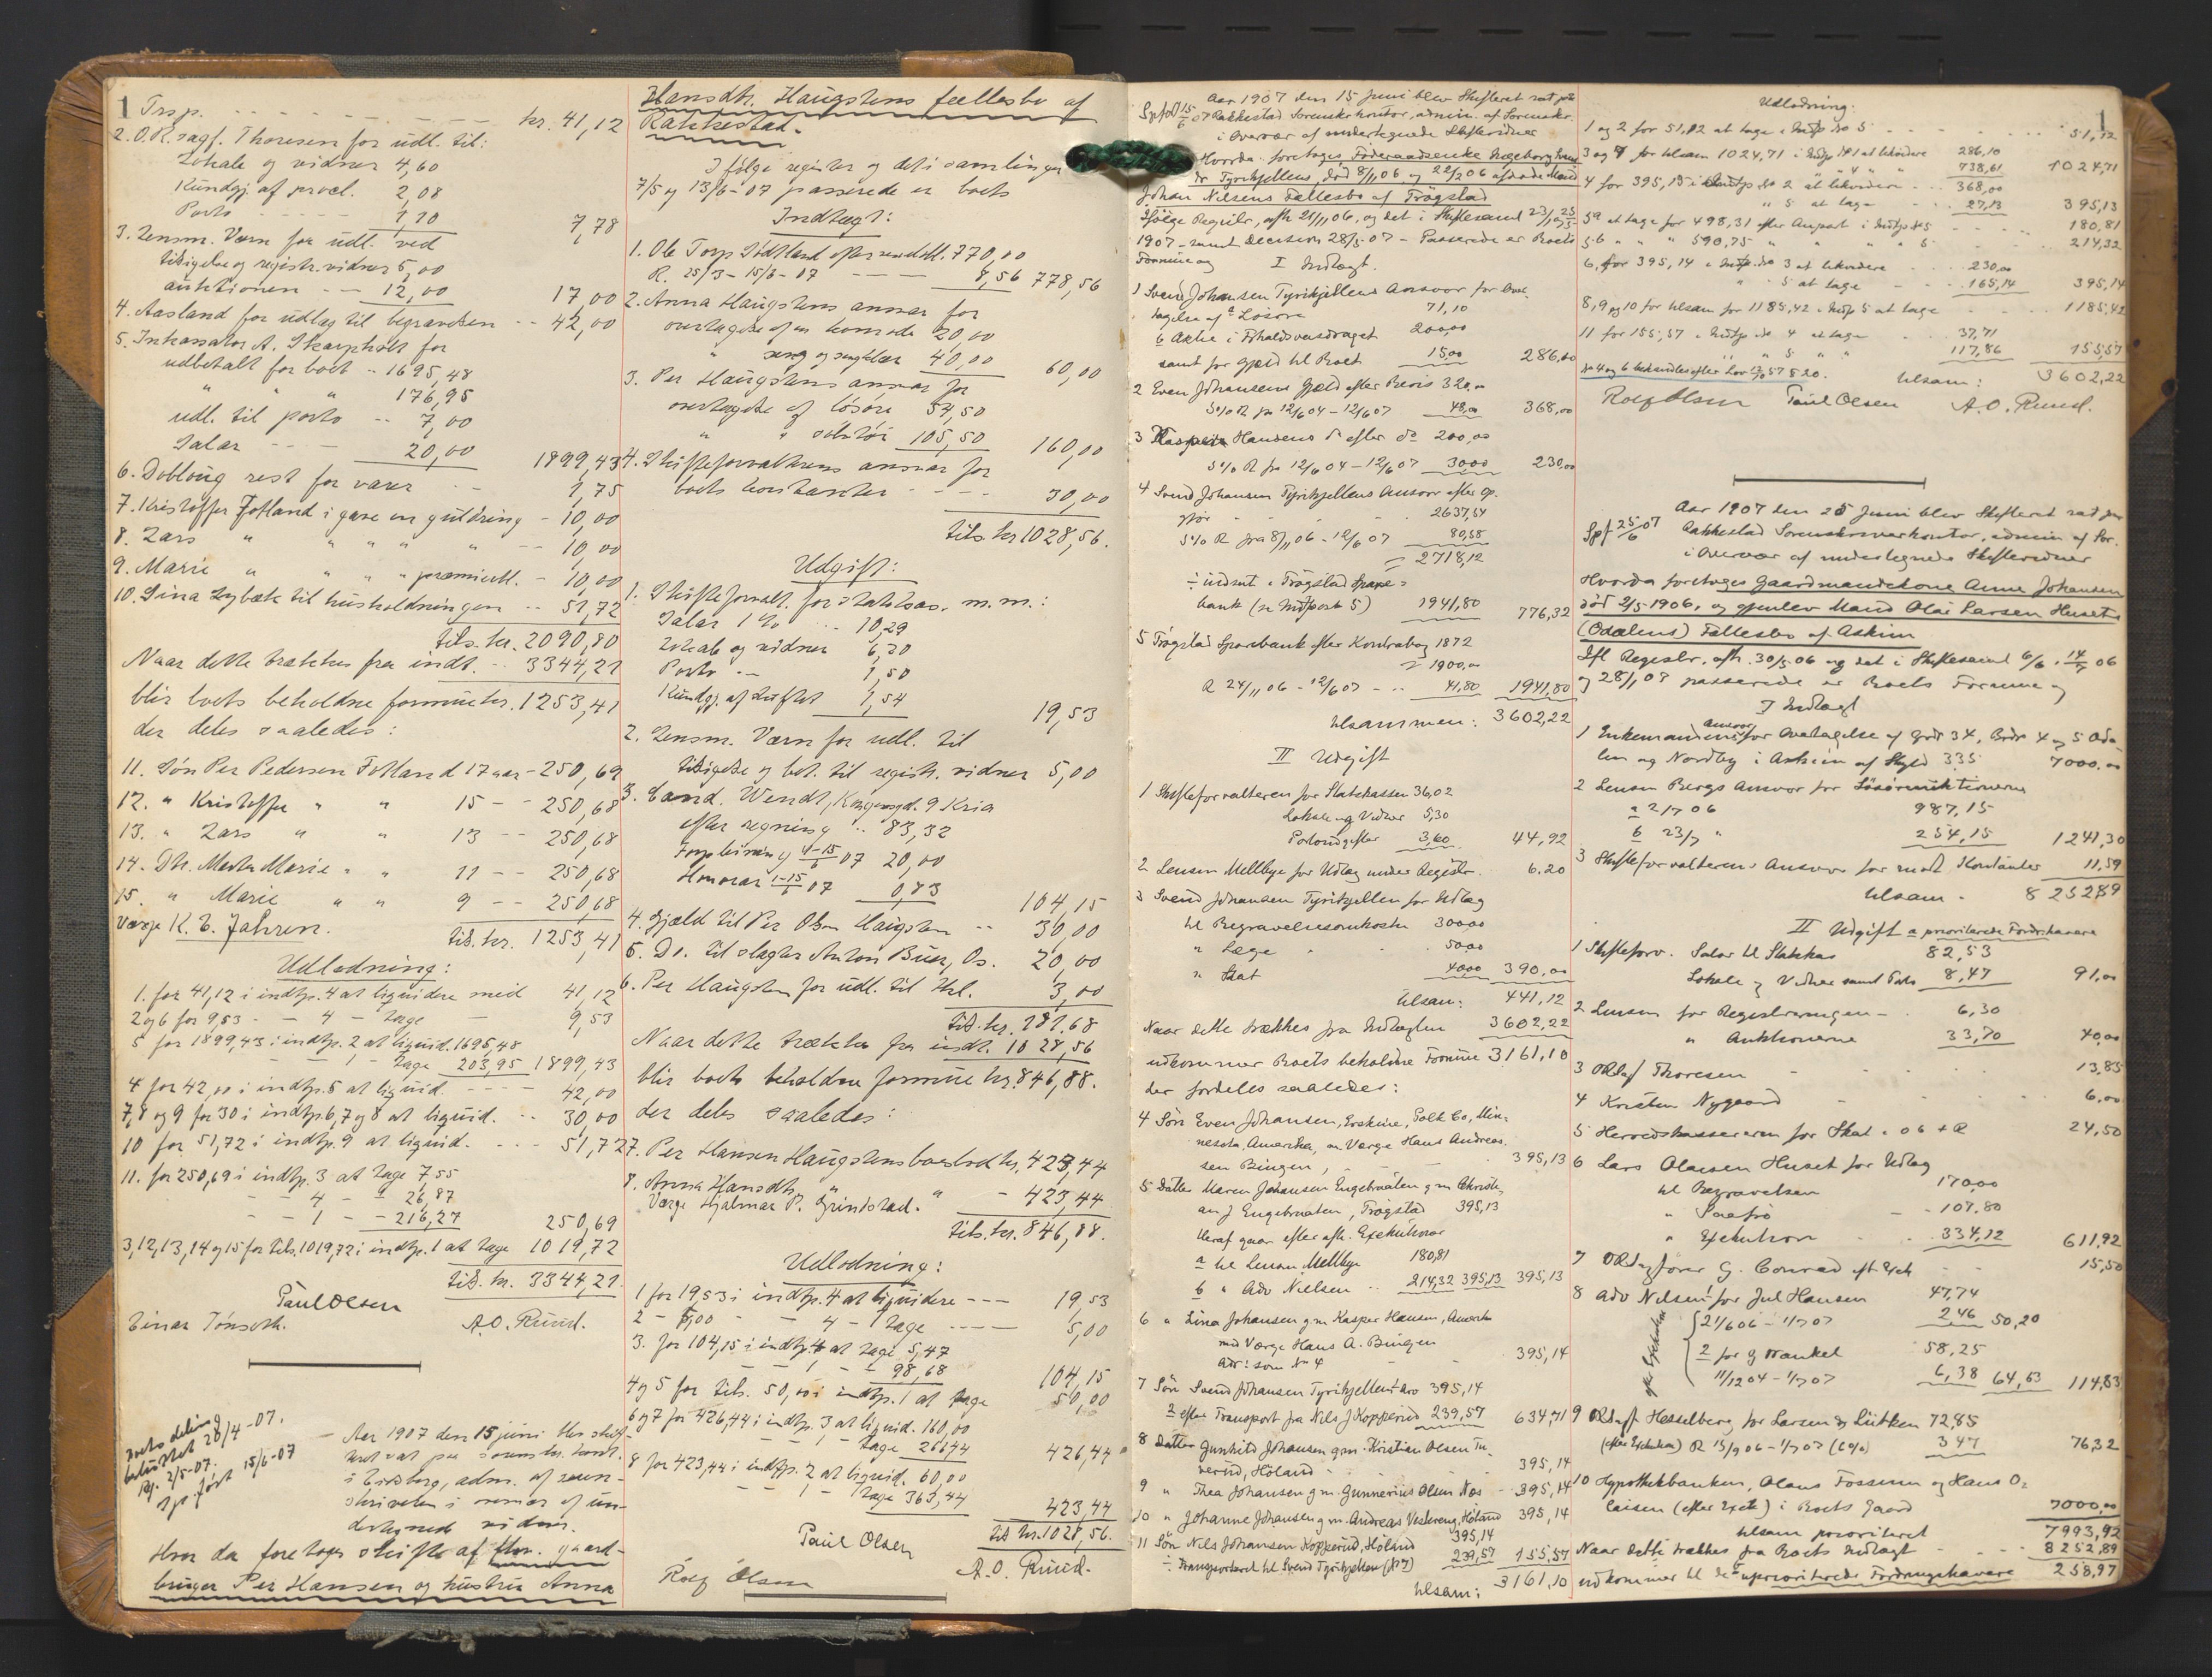 1
Trsp. - - - - - - - - kr. 41,12
2. O.R.sagf. Thoresen for udl. til:
Lokale og vidner 4,60
Kundgj. af procl. 2,08
Porto - - - - 1,10 7,78
3. Lensm. Værn for udl. ved
tilsigelse og registr. vidner 5,00
auktionen - - 12,00 17,00
4. Aasland for udlæg til begravelsen - - 42,00
5. Inkassator A. Skarpholt for
udbetalt for boet - 1695,48
" " " 176,95
udl. til porto - - 7,00
Salær - - - 20,00 1899,43
6. Dobloug rest for varer - - 1,75
7. Kristoffer Fotland i gave en guldring - 10,00
8. Lars " " " " " - - 10,00
9. Marie " " " " præmieobl. - 10,00
10. Lina Lybæk til husholdningen - - 51,72
tils. kr. 2090,80
Naar dette trækkes fra indt. - - 3344,21
blir boets beholdne formue kr. 1253,41
der deles saaledes:
11. Søn Per Pedersen Fotland 17 aar - 250,69
12. " Kristoffer " " 15 - - 250,68
13. " Lars " " 13 - - 250,68
14. Dtr. Marta Marie " " 11 - - 250,68
15. " Marie " " 9 - - 250,68
Værge K. E. Jahren. tils. kr. 1253,41
Udlodning:
1. for 41,12 i indtp. 4 at liquidere med 41,12
2 og 6 for 9,53 - - 4 - tage - 9,53
5 for 1899,43 i indtp. 2 at liquid. 1695,48
- - 1 - tage 203,95 1899,43
4 for 42,00 i indtp. 5 at liquid. - - - - 42,00
7, 8 og 9 for 30 i indtp. 6, 7 og 8 at liquid. - - 30,00
10 for 51,72 i indtp. 9 at liquid. - - - 51,72
11. for 250,69 i indtp. 3 at tage 7,55
- - 4 - " 26,87
- - 1 - - 216,27 250,69
3, 12, 13, 14 og 15 for tils. 1019,72 i indtp. 1 at tage 1019,72
tils. kr. 3344,21
Paul Olsen
Einar Tønseth. A.O. Ruud.
Boets deling
besluttet 20/4-07.
Rg. 2/5-07.
Sp. ført 15/6-07
Aar 1907 den 15 juni blev skif-
teret sat paa sorenskr. kont.
i Eidsberg, adm. af soren-
skriveren i overvær af un-
dertegnede vidner.
Hvor da foretoges skifte af fhv. gaard-
bruger Per Hansen og hustru Anna
Hansdtr. Haugstens fællesbo af
Rakkestad.
I følge register og det i samlingen
7/5 og 13/6-07 passerede er boets
Indtægt:
1. Ole Torp Sødtland efter 770,00
R. 25/3 - 15/6-07 - - - - 8,56 778,56
2. Anna Haugstens ansvar for
overtagelse af en komode 20,00
" seng og sengklær 40,00 60,00
3. Per Haugstens ansvar for
overtagelse af løsøre 54,50
" " sølvtøi 105,50 160,00
4. Skifteforvalterens ansvar for
boets kontanter - - - - 30,00
tils. kr 1028,56.
Udgift:
1. Skifteforvalt. for statskas. m.m.:
Salær 1 % - - 10,29
Lokale og vidner 6,20
Porto - - 1,50
Kundgj. af skiftet 1,54 19,53
2. Lensm. Værn for udl. til
tilsigelse og bet. til registr. vidner 5,00
3. Cand. Wendt, Kongensgd. 9 Kria
efter regning - - 83,32
Forpleining 4-15/6 07 20,00
Honorar 1-15/6 07 0,83 104,15
4. Gjæld til Per Olsen Haugsten - - 30,00
5. Do. til slagter Anton Buer, Os. 20,00
6. Per Haugsten for udl. til Hsl. 3,00
tils. kr. 181,68
Naar dette trækkes fra indt. 1028,56
blir boets beholdne formue kr. 846,88.
der deles saaledes:
7. Per Hansen Haugstens boeslod kr. 423,44
8. Anna Hansdtr. " " - 423,44
Værge Hjalmar P. Grindstad.
tils. kr. 846,88.
Udlodning:
1 for 19,53 i indtp. 4 at liquidere - - - 19,53
2 - 5,00 - - 4 - tage - - - - 5,00
3. for 104,15 i indtp. 4 at tage 5,47
- - 1 - - 98,68 104,15
4 og 5 for tils. 50,00 i indtp. 1 at tage 50,00
6 og 7 for 426,44 i indtp. 3 at liquid. 160,00
- - 1 - tage 266,44 426,44
8 for 423,44 i indtp. 2 at liquid. 60,00
- - 1 - tage 363,44 423,44
Paul Olsen tils kr. 1028,56.
Rolf Olsen A.O. Ruud.
1
Aar 1907 den 15 Juni blev Skifteret sat paa
Sp. ført 15/6 07 Rakkestad Sorenskr kontor, admin. af Sorenskr.
i Overvær af undertegnede Skiftevidner
Hvorda foretoges Føderaadsenke Ingeborg
dr Tyrihjellens, død 8/11 06, og 22/2 06 afdøde Mand
Johan Nilsens Fællesbo af Trøgstad
Ifølge Registr. afh 21/11 06, og det i Skiftesaml 23/1, 25/5
1907 - samt Decision 28/5 07 - Passerede er Boets
Formue og I Indtægt.
1 Svend Johansen Tyrihjellens Ansvar for Over-
tagelse af a Løsøre 71,10
b Aktie i Forholdsvasdraget 200,00
samt for Gjæld til Boet 15,00 286,10
2 Even Johansens Gjæld efter Bevis 320,00
5% R fra 12/6 04 - 12/6 07 48,00 368,00
3 Kaspers Hansens do efter do 200,00
5% R fra 12/6 04 - 12/6 07 30,00 230,00
4 Svend Johansen Tyrihjellens Ansvar efter Op-
gjør - - 2637,54
5% R fra 8/11 06 - 12/6 07 80,58
= 2718,12
÷ indsat i Trøgstad Spare=
bank (se Indtpost 5) 1941,80 776,32
5 Trøgstad Sparebank efter Kontrabog 1872
= 1900,00
R 24/11 06 - 12/6 07 - - 41,80 1941,80
tilsammen: 3602,22
II Udgift
1 Skifteforvalteren for Statskassen 36,02
Lokale og Vidner 5,30
Portoudgifter 3,60 44,92
2 Lensm Mellbye for Udlæg under Registr. 6.20
3 Svend Johansen Tyrihjellen for Udlæg
til Begravelsesomkostn 300,00
" Læge " 50,00
" Skat 40,00 390,00
tilsam: 441,12
Naar dette trækkes fra Indtægten 3602,22
udkommer Boets beholdne Formue 3161,10
der fordeles saaledes:
4 Søn Even Johansen, Erskine, Polk Co, Min-
nesota, Amerika, m. Værge Hans Andreas-
sen Bingen, 395,13
5 Datter Maren Johansen Engebraaten g m Christi-
an J Engebraaten, Trøgstad 395,13
Heraf gaar efter afh. Exekutioner
a til Lensm Mellbye 180,81
b " Adv Nielsen - - 214,32 395,13 395,13
6 " Lina Johansen g m Kasper Hansen, Amerika
med Værge Hans A. Bingen
adr: som No 4 395,14
7 Søn Svend Johansen Tyrihjellen 395,14
efter Transport fra Nils J Kopperud 239,57 634,71
8 Datter Gunhild Johansen g m Kristian Olsen Tu-
nerud, Høland 395,14
9 " Thea Johansen g m Gunnerius Olsen Næs - 395,14
10 " Johanne Johansen g m Andreas Vestereng, Høland 395,14
11 Søn Nils Johansen Kopperud, Høland 395,14
÷ transporteret til Svend Tyrihjellen (No 7) 239,57 155,57
tilsam: 3161,10
Udlodning:
1 og 2 for 51,12 at tage i Indtp No 5 51,12
3 og 7 for tilsam 1024,71 i Indtp No 1 at likvidere 286,10
" " 4 " " 738,61 1024,71
4 for 395,13 i Indtp No 2 at likvidere - - 368,00
" 5 at tage - - 27,13 395,13
5a at tage for 498,31 efter Anpart i Indtp No 5 180,81
5 b " " " 590,75 " " " " 5 214,32
6, for 395,14 i Indtp. No 3 at likvidere - - 230,00
" 5 at tage - - 165,14 395,14
8, 9 og 10 for tilsam for 1185,42 i Indtp 5 at tage 1185,42
11 for 155,57 i Indtp No 4 at tage 37,71
" " 5 " " 117,86 155,57
tilsam: 3602,22
Rolf Olsen Paul Olsen A.O. Ruud.
Aar 1907 den 25 Juni blev Skifteret sat paa
Spf 25/6 07 Rakkestad Sorenskriverkontor, admin af Sor.
i Overvær af undertegnede Skiftevidner
Hvorda foretoges Gaardmandskone Anne Johansen
død 2/5 1906, og gjenlev Mand Olai Larsen Husets
(Odalens) Fællesbo af Askim
Ifl Registr. afh. 30/5 06 og det i Skiftesaml 6/6, 14/7 06
og 28/1 07 passerede er Boets Formue og
I Indtægt
1 Enkemandens ansvar for Overtagelse af Gno 34, Bno 4 og 5 Oda-
len og Nordby i Askim af Skyld 3.35 7000.00
2 Lensm Bergs Ansvar for Løsøreauktionerne
a 2/7 06 987,15
b 23/7 " 254,15 1241,30
3 Skifteforvalterens Ansvar for modt Kontanter 11,59
tilsam - 8252,89
II Udgift a prioriterede Fordrihavere
1 Skifteforv. Salær til Statskas 82,53
Lokale og Vidner samt Porto 8,47 91,00
2 Lensm for Registreringen - 6,30
" Auktionerne 33,70 40,00
3 ORsagf Thoresen 13,85
4 Kristen Nygaard 6,00
5 Herredskassereren for Skat - 06 + R 24,50
6 Lars Olausen Huset for Udlæg
til Begravelsen 170,00
" Saafrø 107.80
" Exekution 334,12 611,92
7 ORsagfører G. Conrad eft Exek 15,50
8 Adv Nilsen 1 for Jul Hansen 47,74
21/6 06 - 1/7 07 2,46 50,20
2 for G Wankel 58,25
11/12 04 - 1/7 07 6,38 64,63 114,83
9 ORsagf Hesselberg for Larsen & Lütken 72,85
(efter Exekution) R 13/9 06 - 1/7 07 (6%) 3 47 76,32
10 Hypothekbanken, Olaus Fossum og Hans O.
Caisen (efter Exek) i Boets Gaard 7000,00
tilsam prioriteret 7993,92
Naar dette trækkes fra Boets Indtægt - - - 8252,89
udkommer til de uprioriterede Fordringshavere 258,97